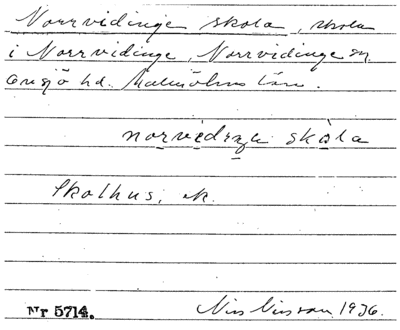 Norrvidinge skola, skola
i Norrvidinge, Norrvidinge sn,
Onsjö hd. Malmöhus län.
norvedinge skåla
Skolhus, ek.
Nr 5714.
Nils Nilsson 1936.